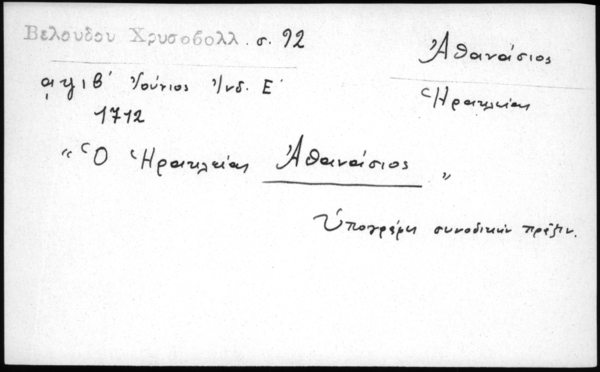 Βελουδου Χρυσοβολλ. σ. 92
Ἀθανάσιος
Ἡρακλείας
αψιβ' Ἰούνιος Ἰνδ. Ε'
1712
"Ὁ Ἡρακλείας Ἀθανάσιος"
Ὑπογράφει συνοδικὴν πρᾶξιν.